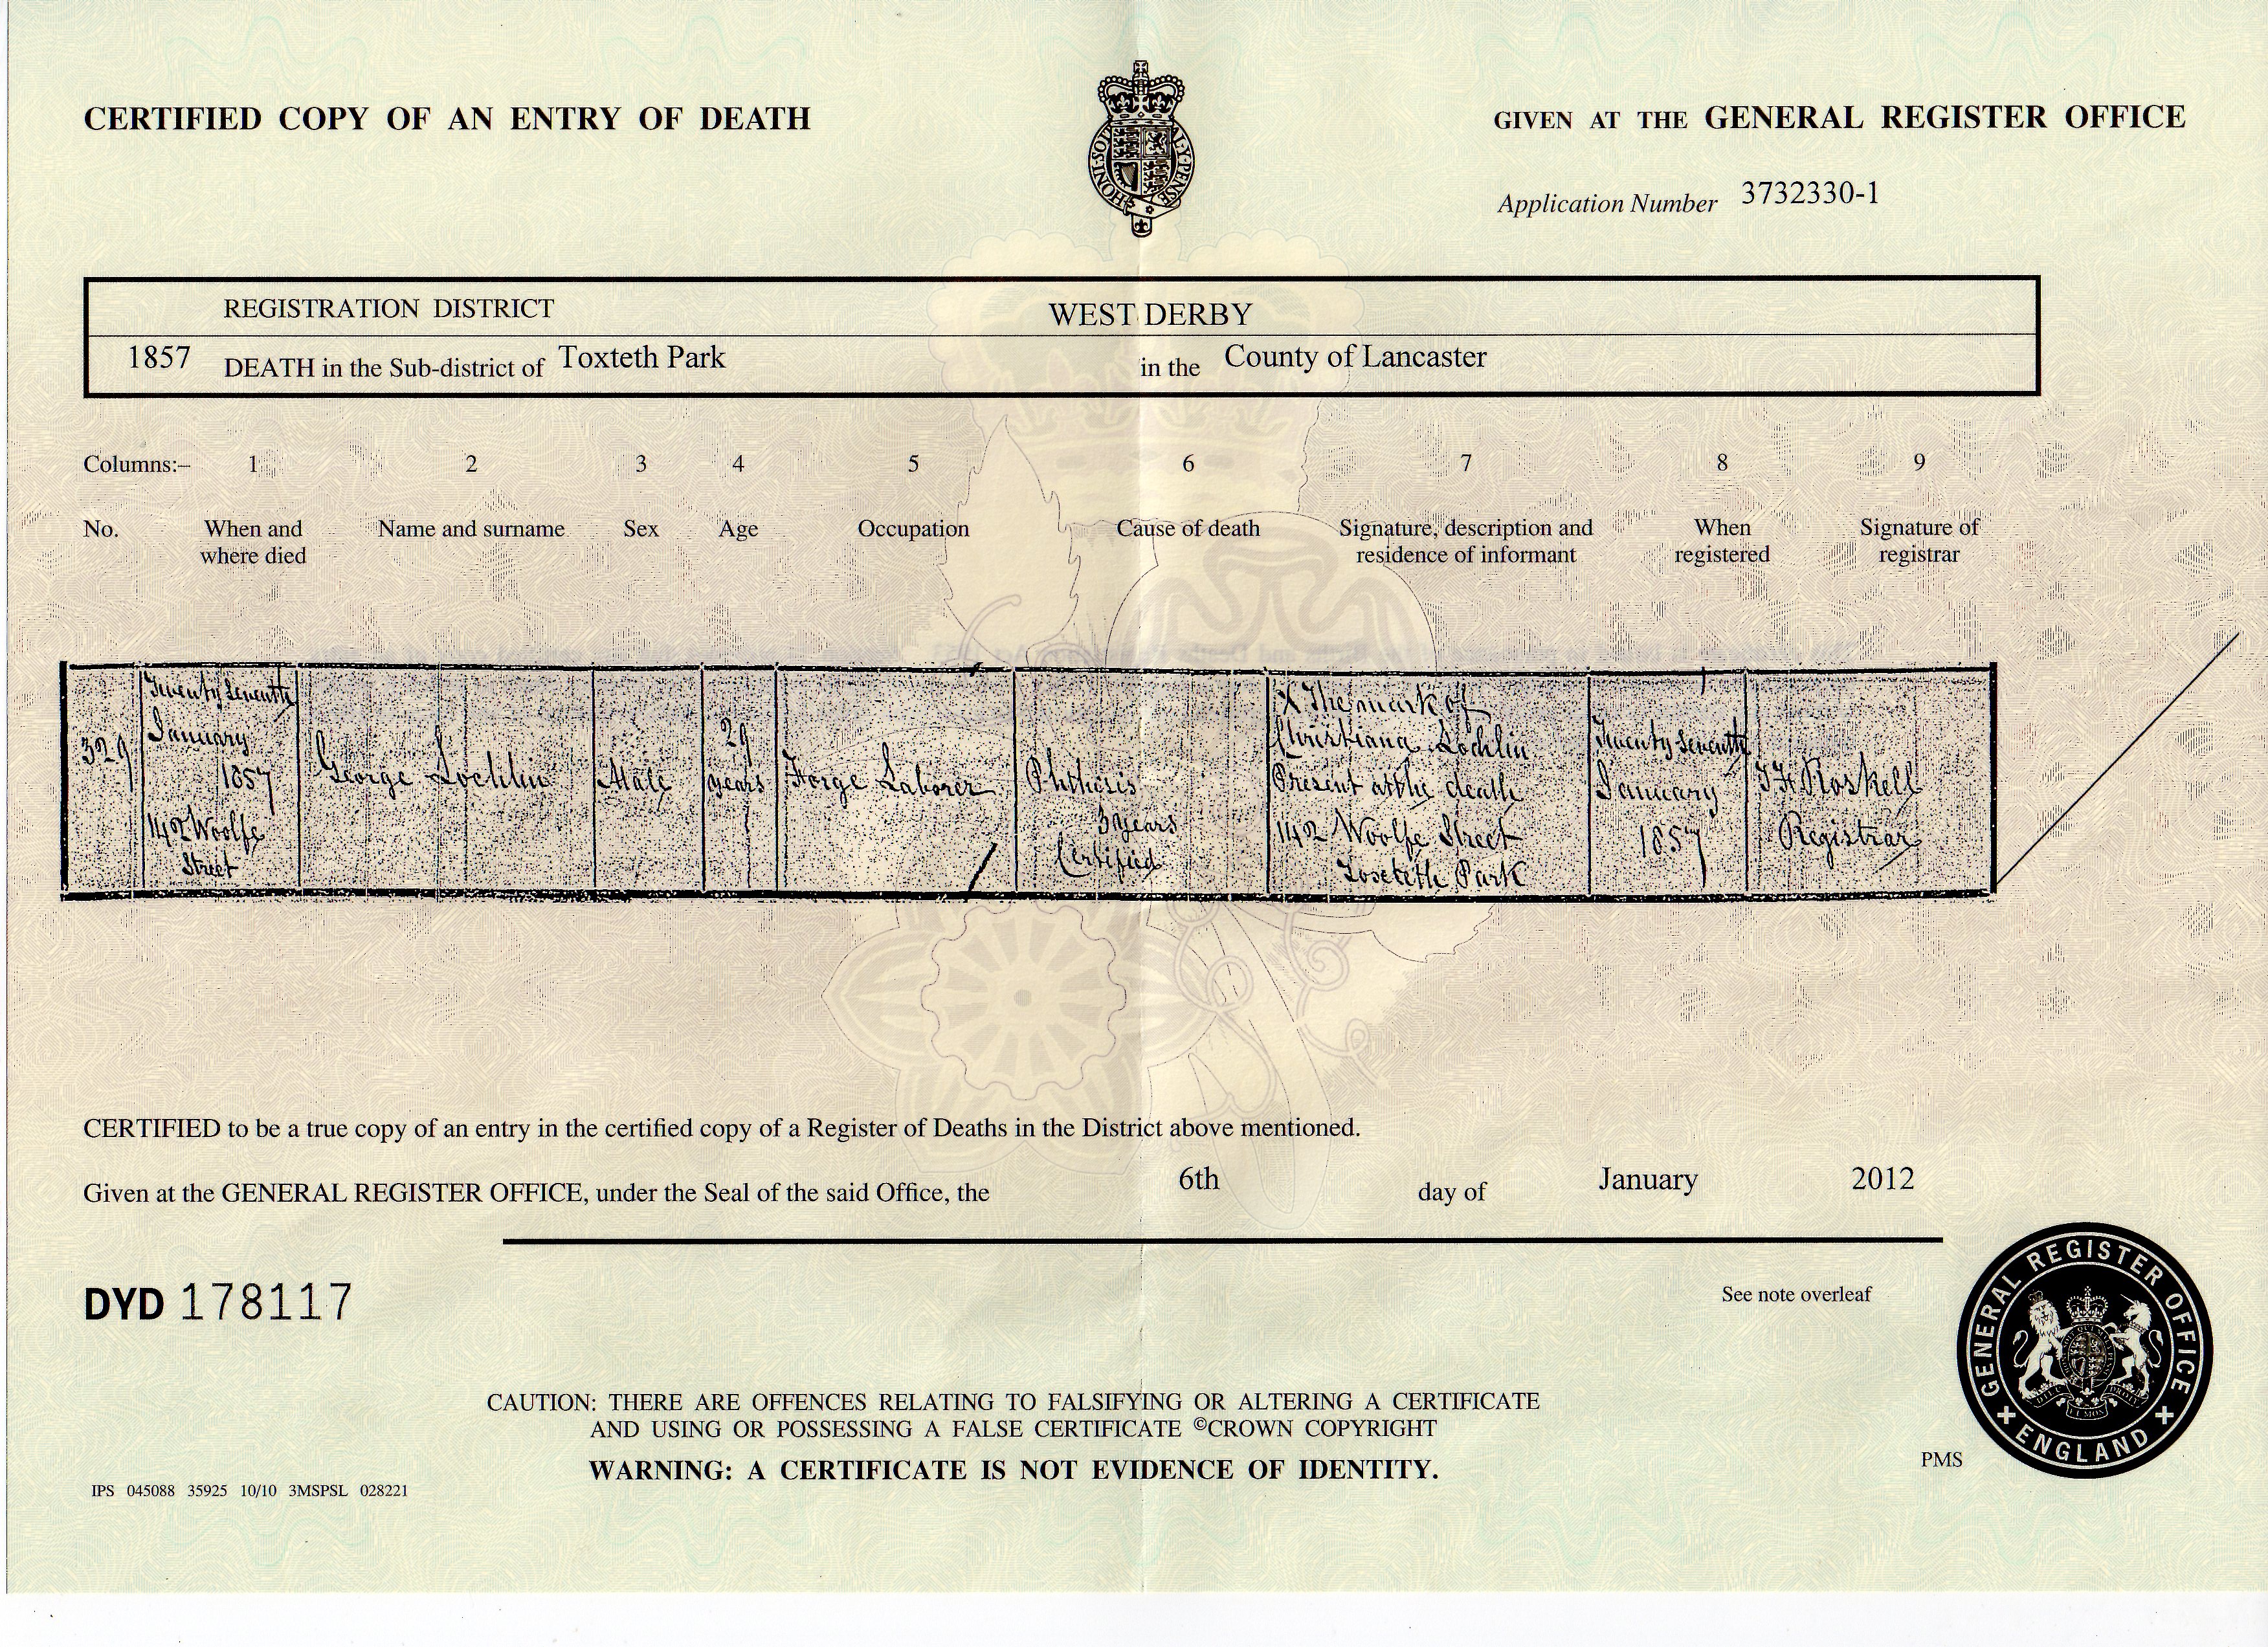 CERTIFIED COPY OF AN ENTRY OF DEATH
HONI·SOIT
AL·Y·PENSE
GIVEN AT THE GENERAL REGISTER OFFICE
Application Number 3732330-1
REGISTRATION DISTRICT WEST DERBY
1857 DEATH in the Sub-district of Toxteth Park in the County of Lancaster
Columns:– 1 2 3 4 5 6 7 8 9
No. When and where died Name and surname Sex Age Occupation Cause of death Signature, description and residence of informant When registered Signature of registrar
329
Twenty seventh
January
1857
142 Woolfe
Street
George Lochlin
Male
29
years
Forge Laborer
Phthisis
3 years
Certified
X The mark of
Christiana Lochlin
Present at the death
142 Woolfe Street
Toxteth Park
Twenty seventh
January
1857
Roskell
Registrar
CERTIFIED to be a true copy of an entry in the certified copy of a Register of Deaths in the District above mentioned.
Given at the GENERAL REGISTER OFFICE, under the Seal of the said Office, the 6th day of January 2012
DYD 178117
See note overleaf
CAUTION: THERE ARE OFFENCES RELATING TO FALSIFYING OR ALTERING A CERTIFICATE
AND USING OR POSSESSING A FALSE CERTIFICATE ©CROWN COPYRIGHT
WARNING: A CERTIFICATE IS NOT EVIDENCE OF IDENTITY.
IPS 045088 35925 10/10 3MSPSL 028221
PMS
GENERAL REGISTER OFFICE
ENGLAND